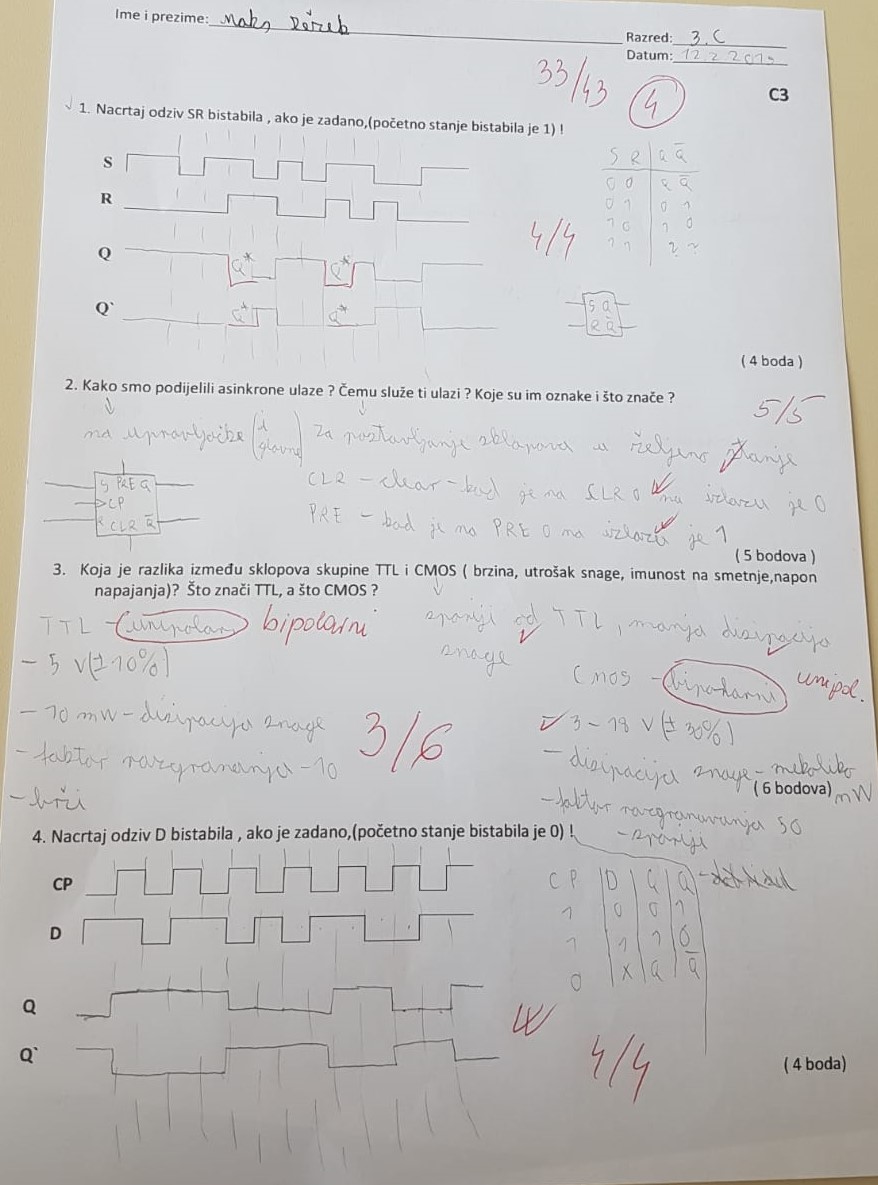 Ime i prezime: Maks
Razred: 3. C
Datum: 12 2 2019
33/43 4
C3
1. Nacrtaj odziv SR bistabila , ako je zadano,(početno stanje bistabila je 1) !
S R Q Q̅
0 0 Q Q̅
0 1 0 1
1 0 1 0
1 1 ? ?
S
R
Q Q* Q*
Q` Q* Q*
4/4
S Q
R Q̅
( 4 boda )
2. Kako smo podijelili asinkrone ulaze ? Čemu služe ti ulazi ? Koje su im oznake i što znače ?
5/5
na upravljačke (i glavne) za postavljanje sklopova u željeno stanje
CLR - clear - kad je na CLR 0 na izlazu je 0
PRE - kad je na PRE 0 na izlazu je 1
S PRE Q
CP
R CLR Q̅
( 5 bodova )
3. Koja je razlika između sklopova skupine TTL i CMOS ( brzina, utrošak snage, imunost na smetnje,napon
napajanja)? Što znači TTL, a što CMOS ?
TTL - unipolarni bipolarni
sporiji od TTL, manja disipacija
snage
- 5 V(±10%)
CMOS - bipolarni unipol.
- 10 mW - disipacija snage
3/6
- 3 - 18 V (± 30%)
- faktor razgrananja - 10
- disipacija snage - nekoliko
mW
( 6 bodova)
- brži
- faktor razgranavanja 50
- sporiji
4. Nacrtaj odziv D bistabila , ako je zadano,(početno stanje bistabila je 0) !
CP
D
Q
Q`
CP D Q Q̅
1 0 0 1
1 1 1 0
0 X Q Q̅
4/4
( 4 boda)